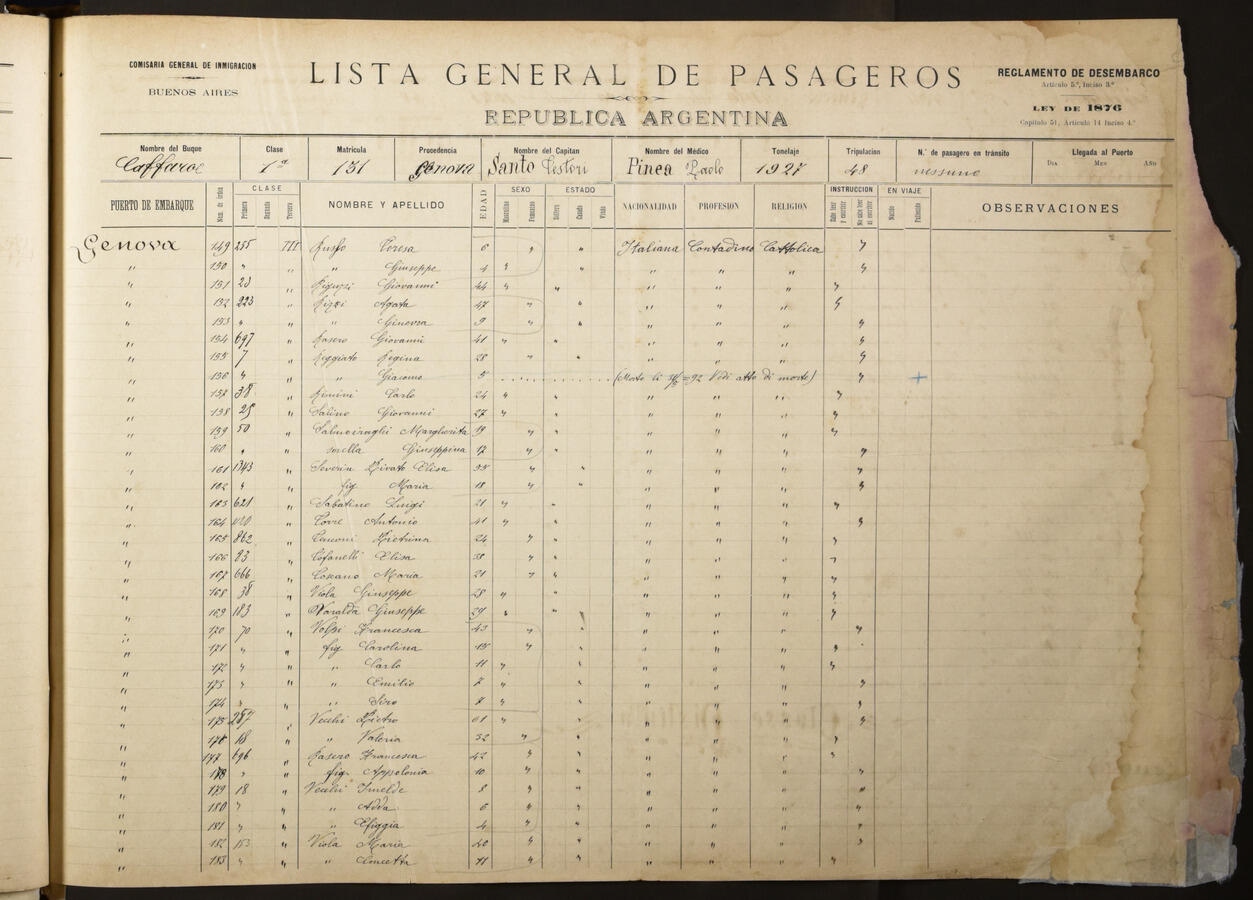 COMISARIA GENERAL DE INMIGRACION
BUENOS AIRES
LISTA GENERAL DE PASAGEROS
REPUBLICA ARGENTINA
REGLAMENTO DE DESEMBARCO
Artículo 5.º, Inciso 3.º
LEY DE 1876
Capítulo 51, Artículo 14 Inciso 4.º
Nombre del Buque Clase Matricula Procedencia Nombre del Capitan Nombre del Médico Tonelaje Tripulacion N.º de pasagero en tránsito Llegada al Puerto
DIA MES AÑO
1ª 131 Genova Santo Pinea Paolo 1927 48 nessuno
PUERTO DE EMBARQUE Num. de órden CLASE Primera Segunda Tercera NOMBRE Y APELLIDO EDAD SEXO Masculino Femenino ESTADO Soltero Casado Viudo NACIONALIDAD PROFESION RELIGION INSTRUCCION Sabe leer y escribir No sabe leer ni escribir EN VIAJE Nacido Fallecido OBSERVACIONES
Genova 149 255 III Russo Teresa 6 " " Italiana Contadino Cattolica "
" 150 " " " Giuseppe 4 " " " " "
" 151 23 " Giovanni 44 " " " " " "
" 152 223 " Rizzi Agata 47 " " " " " "
" 153 " " " Ginevra 9 " " " " " "
" 154 697 " Rasero Giovanni 41 " " " " "
" 155 7 " Reggiato Regina 28 " " " " " "
" 156 " " Giacomo 5 (Morto li =92 Vedi atto di morte) " +
" 157 38 " Rimini Carlo 24 " " " " " "
" 158 25 " Salino Giovanni 27 " " " " " "
" 159 50 " Salmoiraghi Margherita 19 " " " " " "
" 160 " " sorella Giuseppina 12 " " " " " "
" 161 1343 " Severin Elisa " " " " " "
" 162 " " fig Maria 18 " " " " " "
" 163 621 " Sabatino Luigi 21 " " " " " "
" 164 " Torre Antonio 41 " " " " " "
" 165 862 " Pietrina 24 " " " " " "
" 166 83 " Cofanelli Elisa 38 " " " " " "
" 167 666 " Maria 21 " " " " " "
" 168 38 " Viola Giuseppe 28 " " " " " "
" 169 183 " Varalda Giuseppe " " " " " "
" 170 70 " Volpi Francesca 43 " " " " " "
" 171 " " fig Carolina 15 " " " " " "
" 172 " " " Carlo 11 " " " " " "
" 173 " " " Emilio 7 " " " " " "
" 174 " " " Siro " " " " " "
" 175 287 " Vecchi Pietro 61 " " " " "
" 176 18 " " Valeria 32 " " " " " "
" 177 696 " Rasero Francesca 42 " " " " " "
" 178 " " fig. Appolonia 10 " " " " " "
" 179 18 " Vecchi Imelde 8 " " " " " "
" 180 " " " Adda 6 " " " " " "
" 181 " " " Efiggia 4 " " " " " "
" 182 153 " Viola Maria 20 " " " " " "
" 183 " " " Concetta " " " " " "